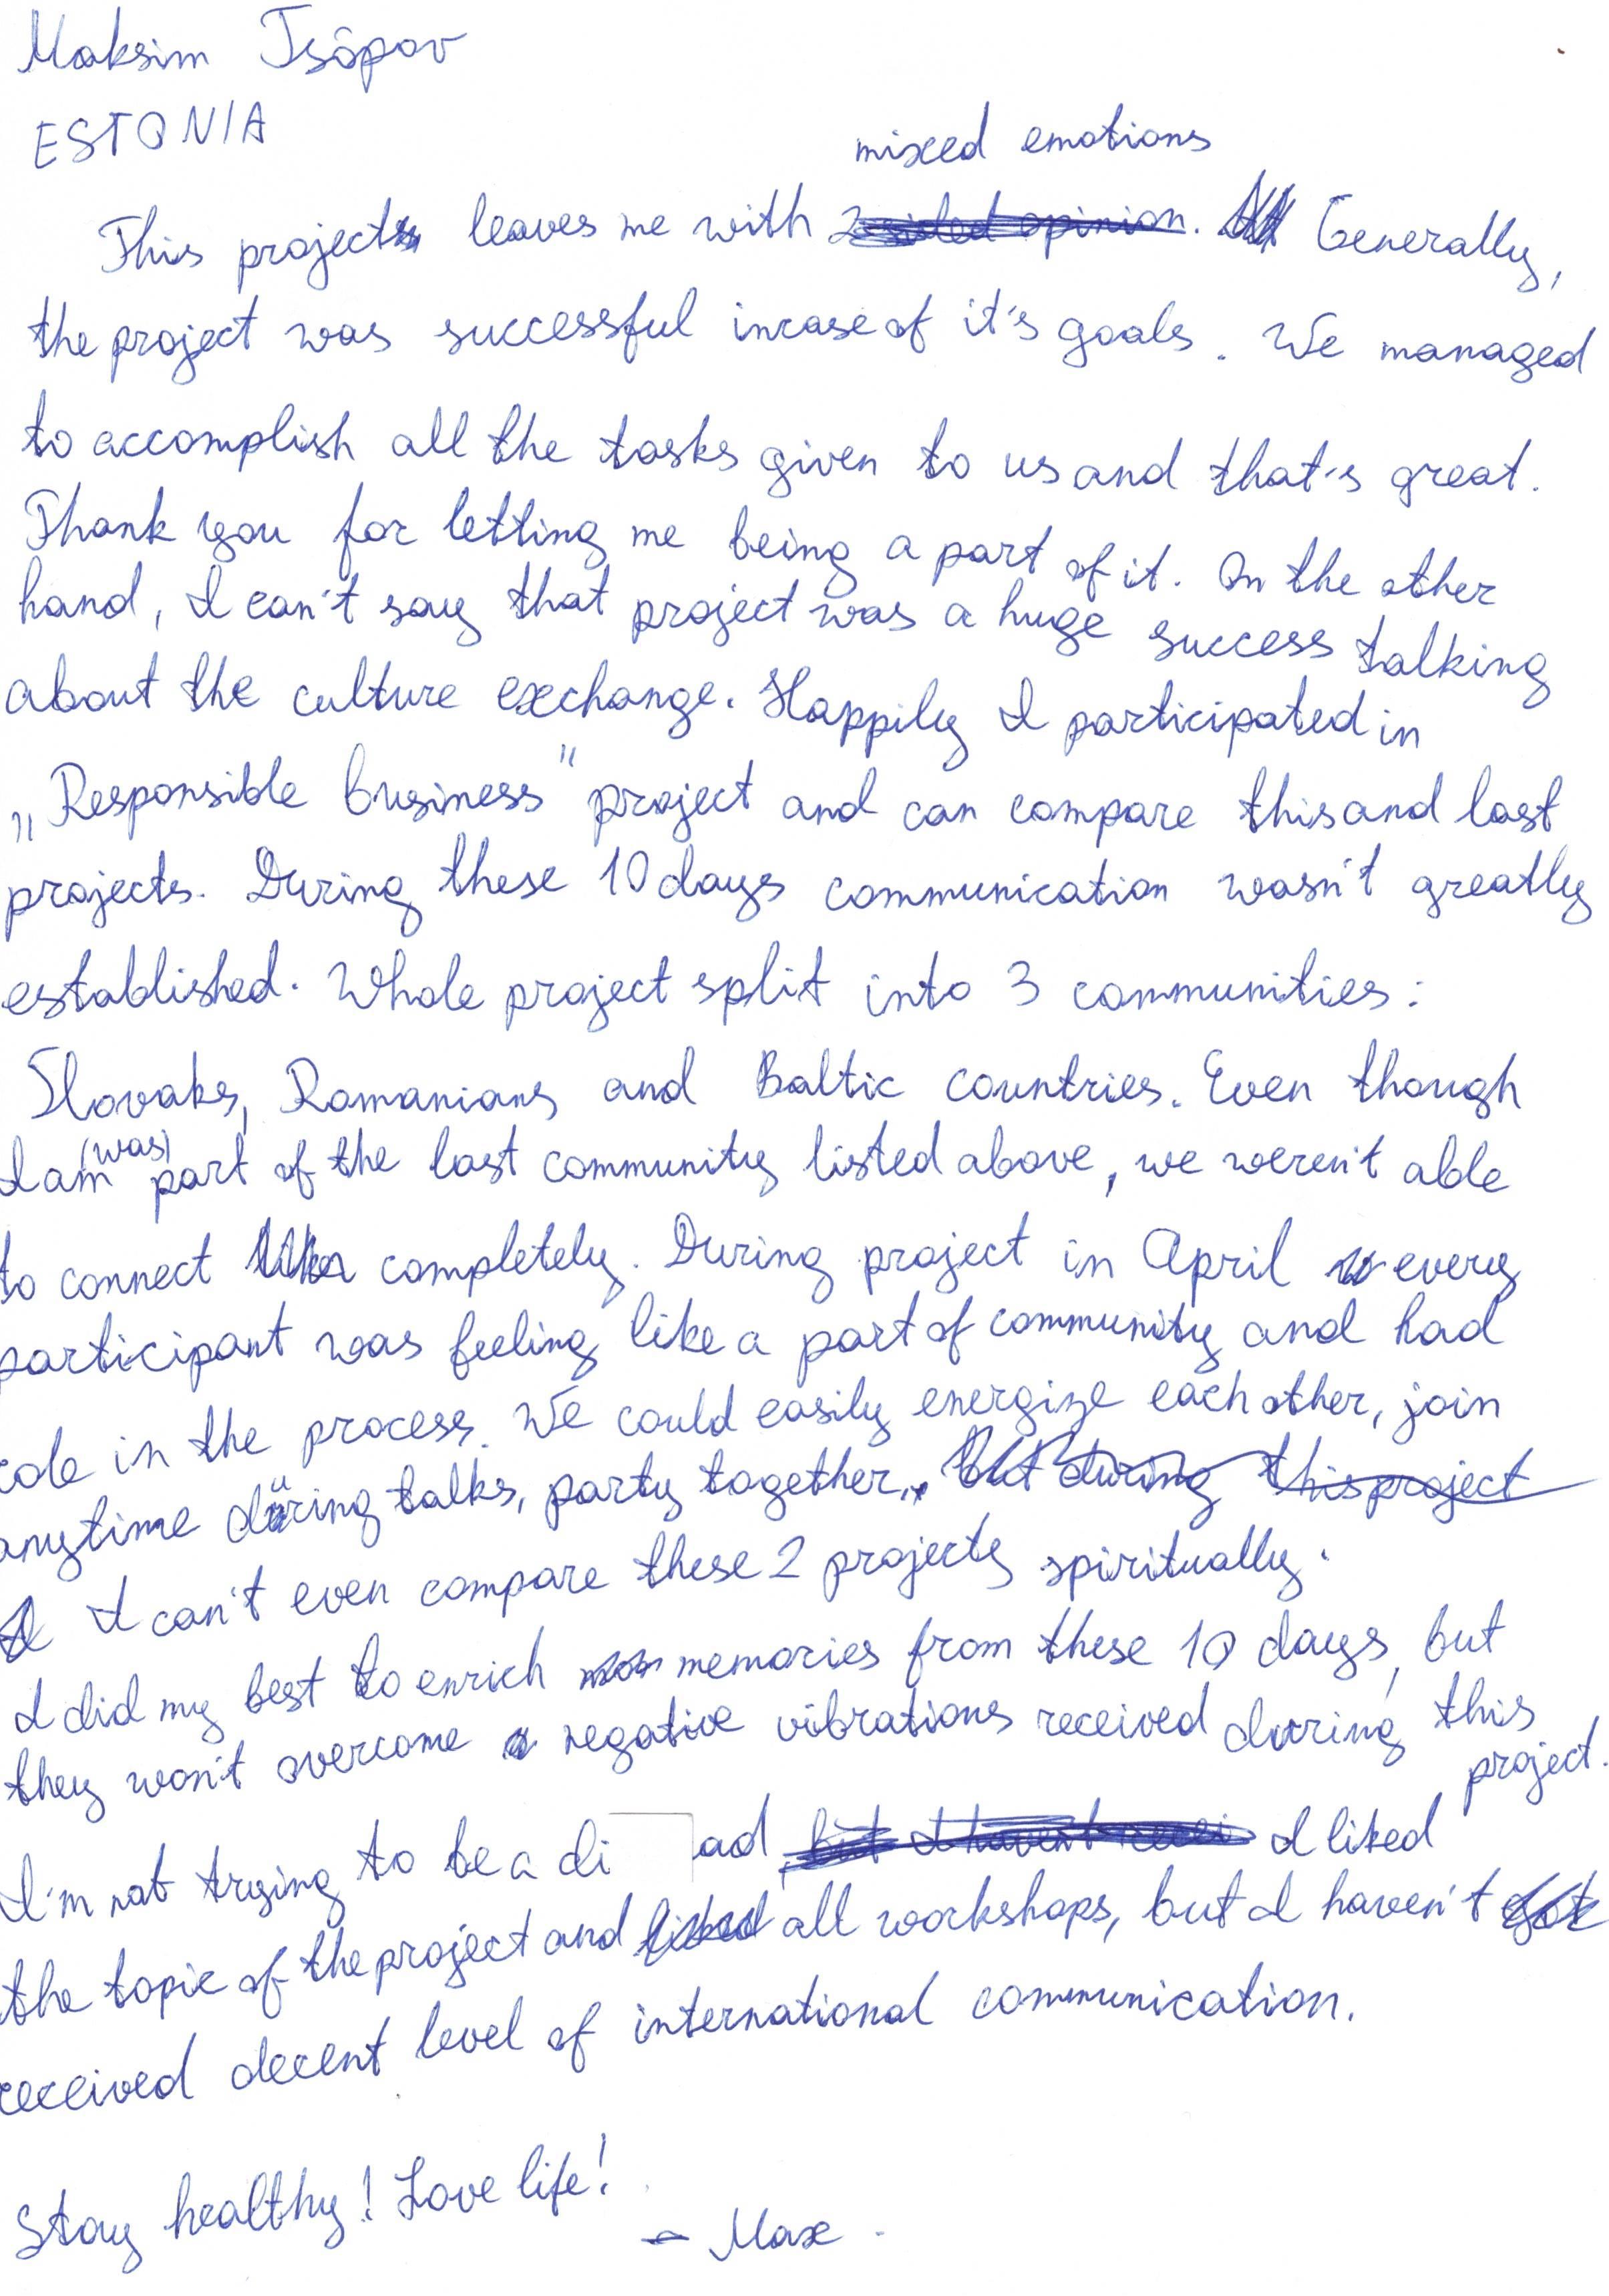 Maksim Tsõpov
ESTONIA
mixed emotions
This project leaves me with 2 sided opinion. Generally,
the project was successful incase of it's goals. We managed
to accomplish all the tasks given to us and that's great.
Thank you for letting me being a part of it. On the other
hand, I can't say that project was a huge success talking
about the culture exchange. Happily I participated in
„Responsible business" project and can compare this and last
projects. During these 10 days communication wasn't greatly
established. Whole project split into 3 communities:
Slovaks, Romanians and Baltic countries. Even though
I am (was) part of the last community listed above, we weren't able
to connect completely. During project in April every
participant was feeling like a part of community and had
role in the process. We could easily energize each other, join
anytime during talks, party together, but during this project
I can't even compare these 2 projects spiritually.
I did my best to enrich memories from these 10 days, but
they won't overcome negative vibrations received during this
project.
I'm not trying to be a di ad, but I haven't recei I liked
the topic of the project and liked all workshops, but I haven't got
received decent level of international communication.
Stay healthy! Love life!
- Max